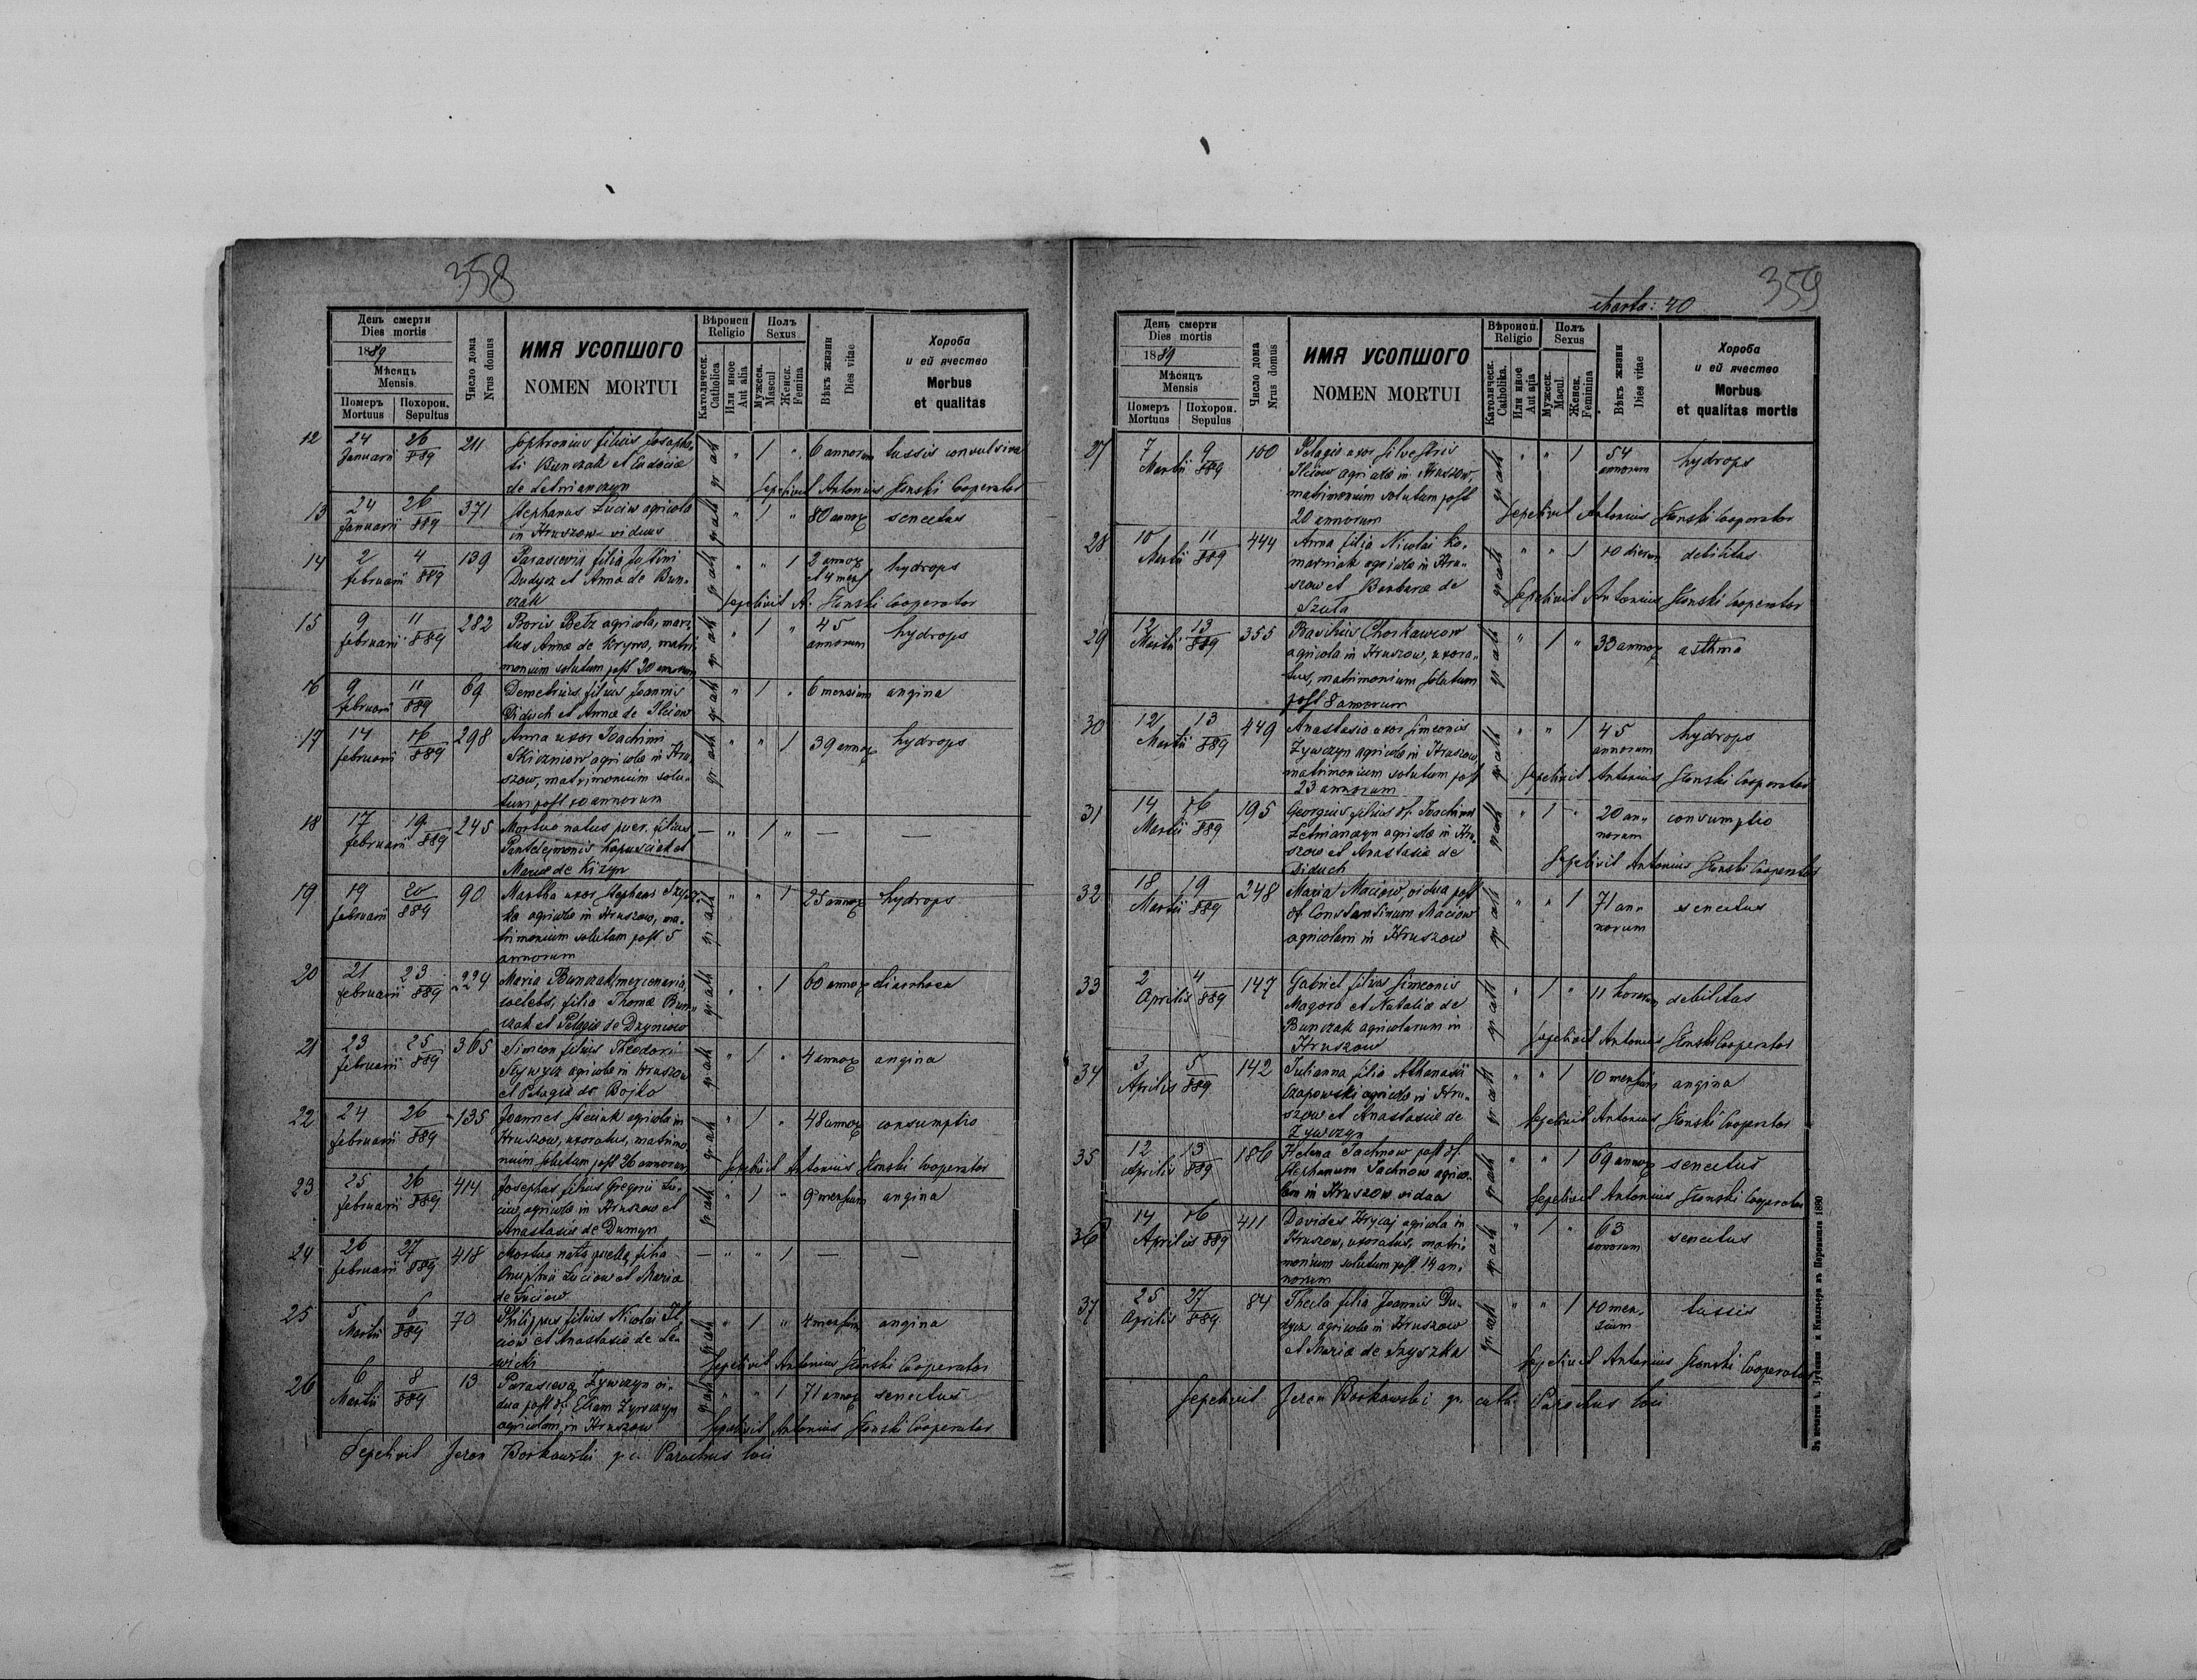 358
День смерти
Dies mortis
1889
Мѣсяцъ
Mensis
Померъ
Mortuus
Похорон.
Sepultus
Число дома
Nrus domus
ИМЯ УСОПШОГО
NOMEN MORTUI
Вѣроисп.
Religio
Католическ.
Catholica
Или иное
Aut alia
Полъ
Sexus
Мужеск.
Mascul
Женск.
Femina
Вѣкъ жизни
Dies vitae
Хороба
и ей ячество
Morbus
et qualitas
12 24 Januarii 26 889 211 Sophronius filius Josapha-
ti Bunczak et Eudociæ
de Letnianczyn
gr. cath " 1 " 6 annorum tussis convulsiva
Sepelivit Antonius Cooperator
13 24 Januarii 26 889 371 Stephanus Luciw agricola
in Hruszow viduus
gr. cath " 1 " 80 annor senectus
14 2 februarii 4 889 139 Parascevia filia Justini
Dudycz et Anna de Bun-
czak
gr. cath " " 1 2 annor
et 4 mens
hydrops
Sepelivit A. Cooperator
15 9 februarii 11 889 282 Boris Betz agricola, mari-
tus Annæ de Krywa, matri-
monium solutum post 20 annorum
gr. cath " 1 " 45
annorum
hydrops
16 9 februarii 11 889 69 Demetrius filius Joannis
Diduch et Annæ de Ilciow
gr. cath " 1 " 6 mensium angina
17 14 februarii 16 889 298 Anna uxor Joachimi
Skiczniow agricolæ in Hru-
szow, matrimonium solu-
tum post 10 annorum
gr. cath " " 1 39 annor hydrops
18 17 februarii 19 889 245 Mortuo natus puer, filius
Pantelejmonis Kapusciak et
Mariæ de Kizyn
— " 1 " — —
19 19 februarii 20 889 90 Martha uxor Stephani Szysz-
ka agricolæ in Hruszow, ma-
trimonium solutum post 5
annorum
gr. cath " " 1 25 annor hydrops
20 21 februarii 23 889 224 Maria Bunczak, mercenaria,
cælebs, filia Thomæ Bun-
czak et Pelagiæ de Dzyniow
gr. cath " " 1 60 annor diarrhoea
21 23 februarii 25 889 365 Simeon filius Theodori
agricolæ in Hruszow
et Pelagiæ de Bojko
gr. cath " 1 " 4 annor angina
22 24 februarii 26 889 135 Joannes agricola in
Hruszow, uxoratus, matrimo-
nium solutum post 26 annorum
gr. cath " 1 " 48 annor consumptio
Sepelivit Antonius Cooperator
23 25 februarii 26 889 414 Josephus filius Gregorii Lu-
ciw, agricolæ in Hruszow et
Anastasiæ de Dumyn
gr. cath " 1 " 9 mensium angina
24 26 februarii 27 889 418 Mortuo nata puella, filia
Onuphrii Luciow et Mariæ
de Luciow
— " " 1 — —
25 5 Martii 6 889 70 Philippus filius Nicolai Il-
ciow et Anastasiæ de Le-
wicki
gr. cath " 1 " 4 mensium angina
Sepelivit Antonius Cooperator
26 6 Martii 8 889 13 Parasceva Zywczyn vi-
dua post df. Eliam Zywczyn
agricolam in Hruszow
gr. cath " " 1 71 annor senectus
Sepelivit Antonius Cooperator
Sepelivit Jeron Borkowski g. c. Parochus loci
359
charta: 40
День смерти
Dies mortis
1889
Мѣсяцъ
Mensis
Померъ
Mortuus
Похорон.
Sepulus
Число дома
Nrus domus
ИМЯ УСОПШОГО
NOMEN MORTUI
Вѣроисп.
Religio
Католическ.
Catholika.
Или иное
Aut alia
Полъ
Sexus
Мужеск.
Macul.
Женск.
Feminina
Вѣкъ жизни
Dies vitae
Хороба
и ей ячество
Morbus
et qualitas mortis
27 7 Martii 9 889 100 Pelagia uxor Silvestris
Ilciow agricolæ in Hruszow,
matrimonium solutum post
20 annorum
gr. cath " " 1 54
annorum
hydrops
Sepelivit Antonius Cooperator
28 10 Martii 11 889 444 Anna filia Nicolai Ko-
marniak agricolæ in Hru-
szow et Barbaræ de
Szuta
gr. cath " " 1 10 dierum debilitas
Sepelivit Antonius Cooperator
29 12 Martii 13 889 355 Basilius Chorkawciow
agricola in Hruszow, uxora-
tus, matrimonium solutum
post 8 annorum
gr. cath " 1 " 33 annor asthma
30 12 Martii 13 889 449 Anastasia uxor Simeonis
Zywczyn agricolæ in Hruszow
matrimonium solutum post
23 annorum
gr. cath " " 1 45
annorum
hydrops
Sepelivit Antonius Cooperator
31 14 Martii 16 889 195 Georgius filius df. Joachimi
Letnianczyn agricolæ in Hru-
szow et Anastasiæ de
Diduch
gr. cath " 1 " 20 an-
norum
consumptio
Sepelivit Antonius Cooperator
32 18 Martii 19 889 248 Maria Maciow, vidua post
df. Constantinum Maciow
agricolam in Hruszow
gr. cath " " 1 71 an-
norum
senectus
33 2 Aprilis 4 889 147 Gabriel filius Simeonis
Magora et Nataliæ de
Bunczak agricolarum in
Hruszow
gr. cath " 1 " 11 horarum debilitas
Sepelivit Antonius Cooperator
34 3 Aprilis 5 889 142 Julianna filia Athanasii
Czapowski agricolæ in Hru-
szow et Anastasiæ de
Zywczyn
gr. cath " " 1 10 mensium angina
Sepelivit Antonius Cooperator
35 12 Aprilis 13 889 186 Helena Jachnow post df.
Stephanum Jachnow agrico-
lam in Hruszow vidua
gr. cath " " 1 69 annor senectus
Sepelivit Antonius Cooperator
36 14 Aprilis 16 889 411 Davides Hrycaj agricola in
Hruszow, uxoratus, matri-
monium solutum post 14 an-
norum
gr. cath " 1 " 63
annorum
senectus
37 25 Aprilis 27 889 84 Thecla filia Joannis Du-
dycz agricolæ in Hruszow
et Mariæ de Szyszka
gr. cath " " 1 10 men-
sium
tussis
Sepelivit Antonius Cooperator
Sepelivit Jeron Borkowski gr. cath. Parochus loci